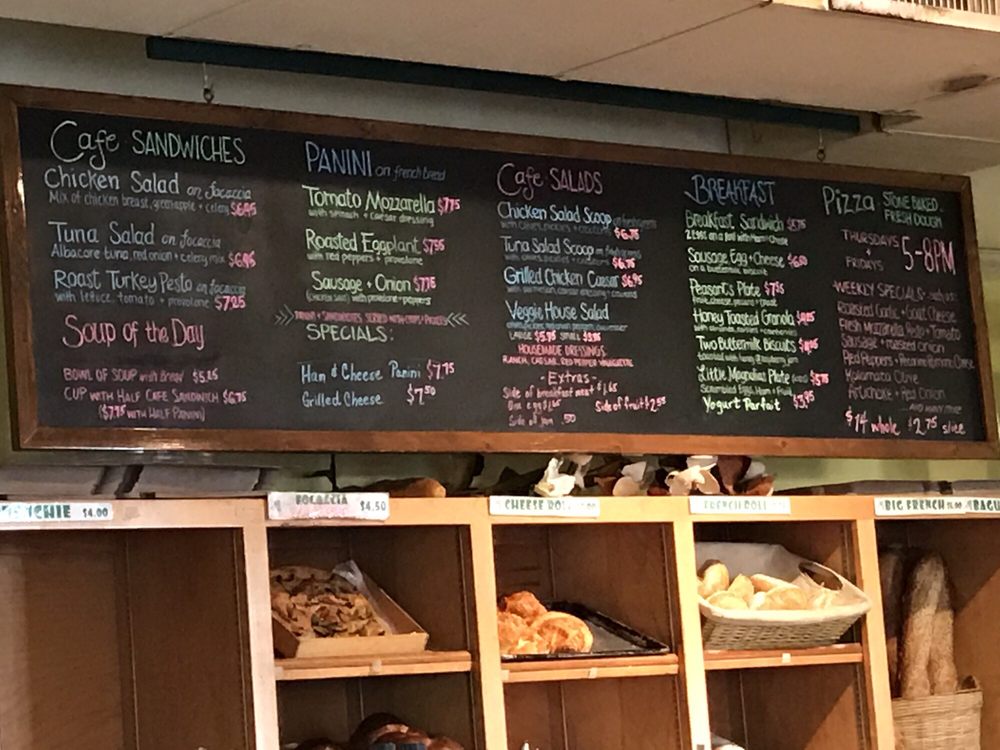 Cafe SANDWICHES
Chicken Salad on focaccia
Mix of chicken breast, green apple + celery $6.95
Tuna Salad on focaccia
Albacore tuna, red onion + celery mix $6.95
Roast Turkey Pesto on focaccia
with lettuce, tomato + provolone $7.25
Soup of the Day
BOWL OF SOUP with Bread $5.25
CUP WITH HALF CAFE SANDWICH $6.75
($7.75 WITH HALF PANINI)
PANINI on french bread
Tomato Mozzarella $7.75
with spinach + caesar dressing
Roasted Eggplant $7.95
with red peppers + provolone
Sausage + Onion $7.75
with provolone + peppers
SPECIALS:
Ham & Cheese Panini $7.75
Grilled Cheese $7.50
Cafe SALADS
Chicken Salad Scoop
$6.75
Tuna Salad Scoop
$6.75
Grilled Chicken Caesar $6.95
Veggie House Salad
LARGE $5.95 SMALL
HOUSEMADE DRESSINGS
RANCH, CAESAR, RED PEPPER VINAIGRETTE
-Extras-
Side of breakfast meat $1.65
One egg
Side of fruit $2.55
Side of jam .50
BREAKFAST
Breakfast Sandwich $5.75
2 EGGS on a Roll with Ham + Cheese
Sausage Egg + Cheese
on a buttermilk biscuit
Peasant's Plate
fruit, cheese,
Honey Toasted Granola
with almonds, raisins + cranberries
Two Buttermilk Biscuits
toasted with
Little Magnolia's Plate $5.75
Scrambled Eggs, Ham + Fruit
Yogurt Parfait $3.95
Pizza STONE BAKED
FRESH DOUGH
THURSDAYS
FRIDAYS 5-8PM
WEEKLY SPECIALS
Roasted Garlic + Goat Cheese
Fresh Mozzarella Pesto + Tomato
Sausage + roasted onion
Red Peppers
Kalamata Olive
Artichoke + Red Onion
...and many more
$14 whole $2.75 slice
$4.00
FOCACCIA $4.50
CHEESE ROLL
FRENCH ROLL
BIG FRENCH